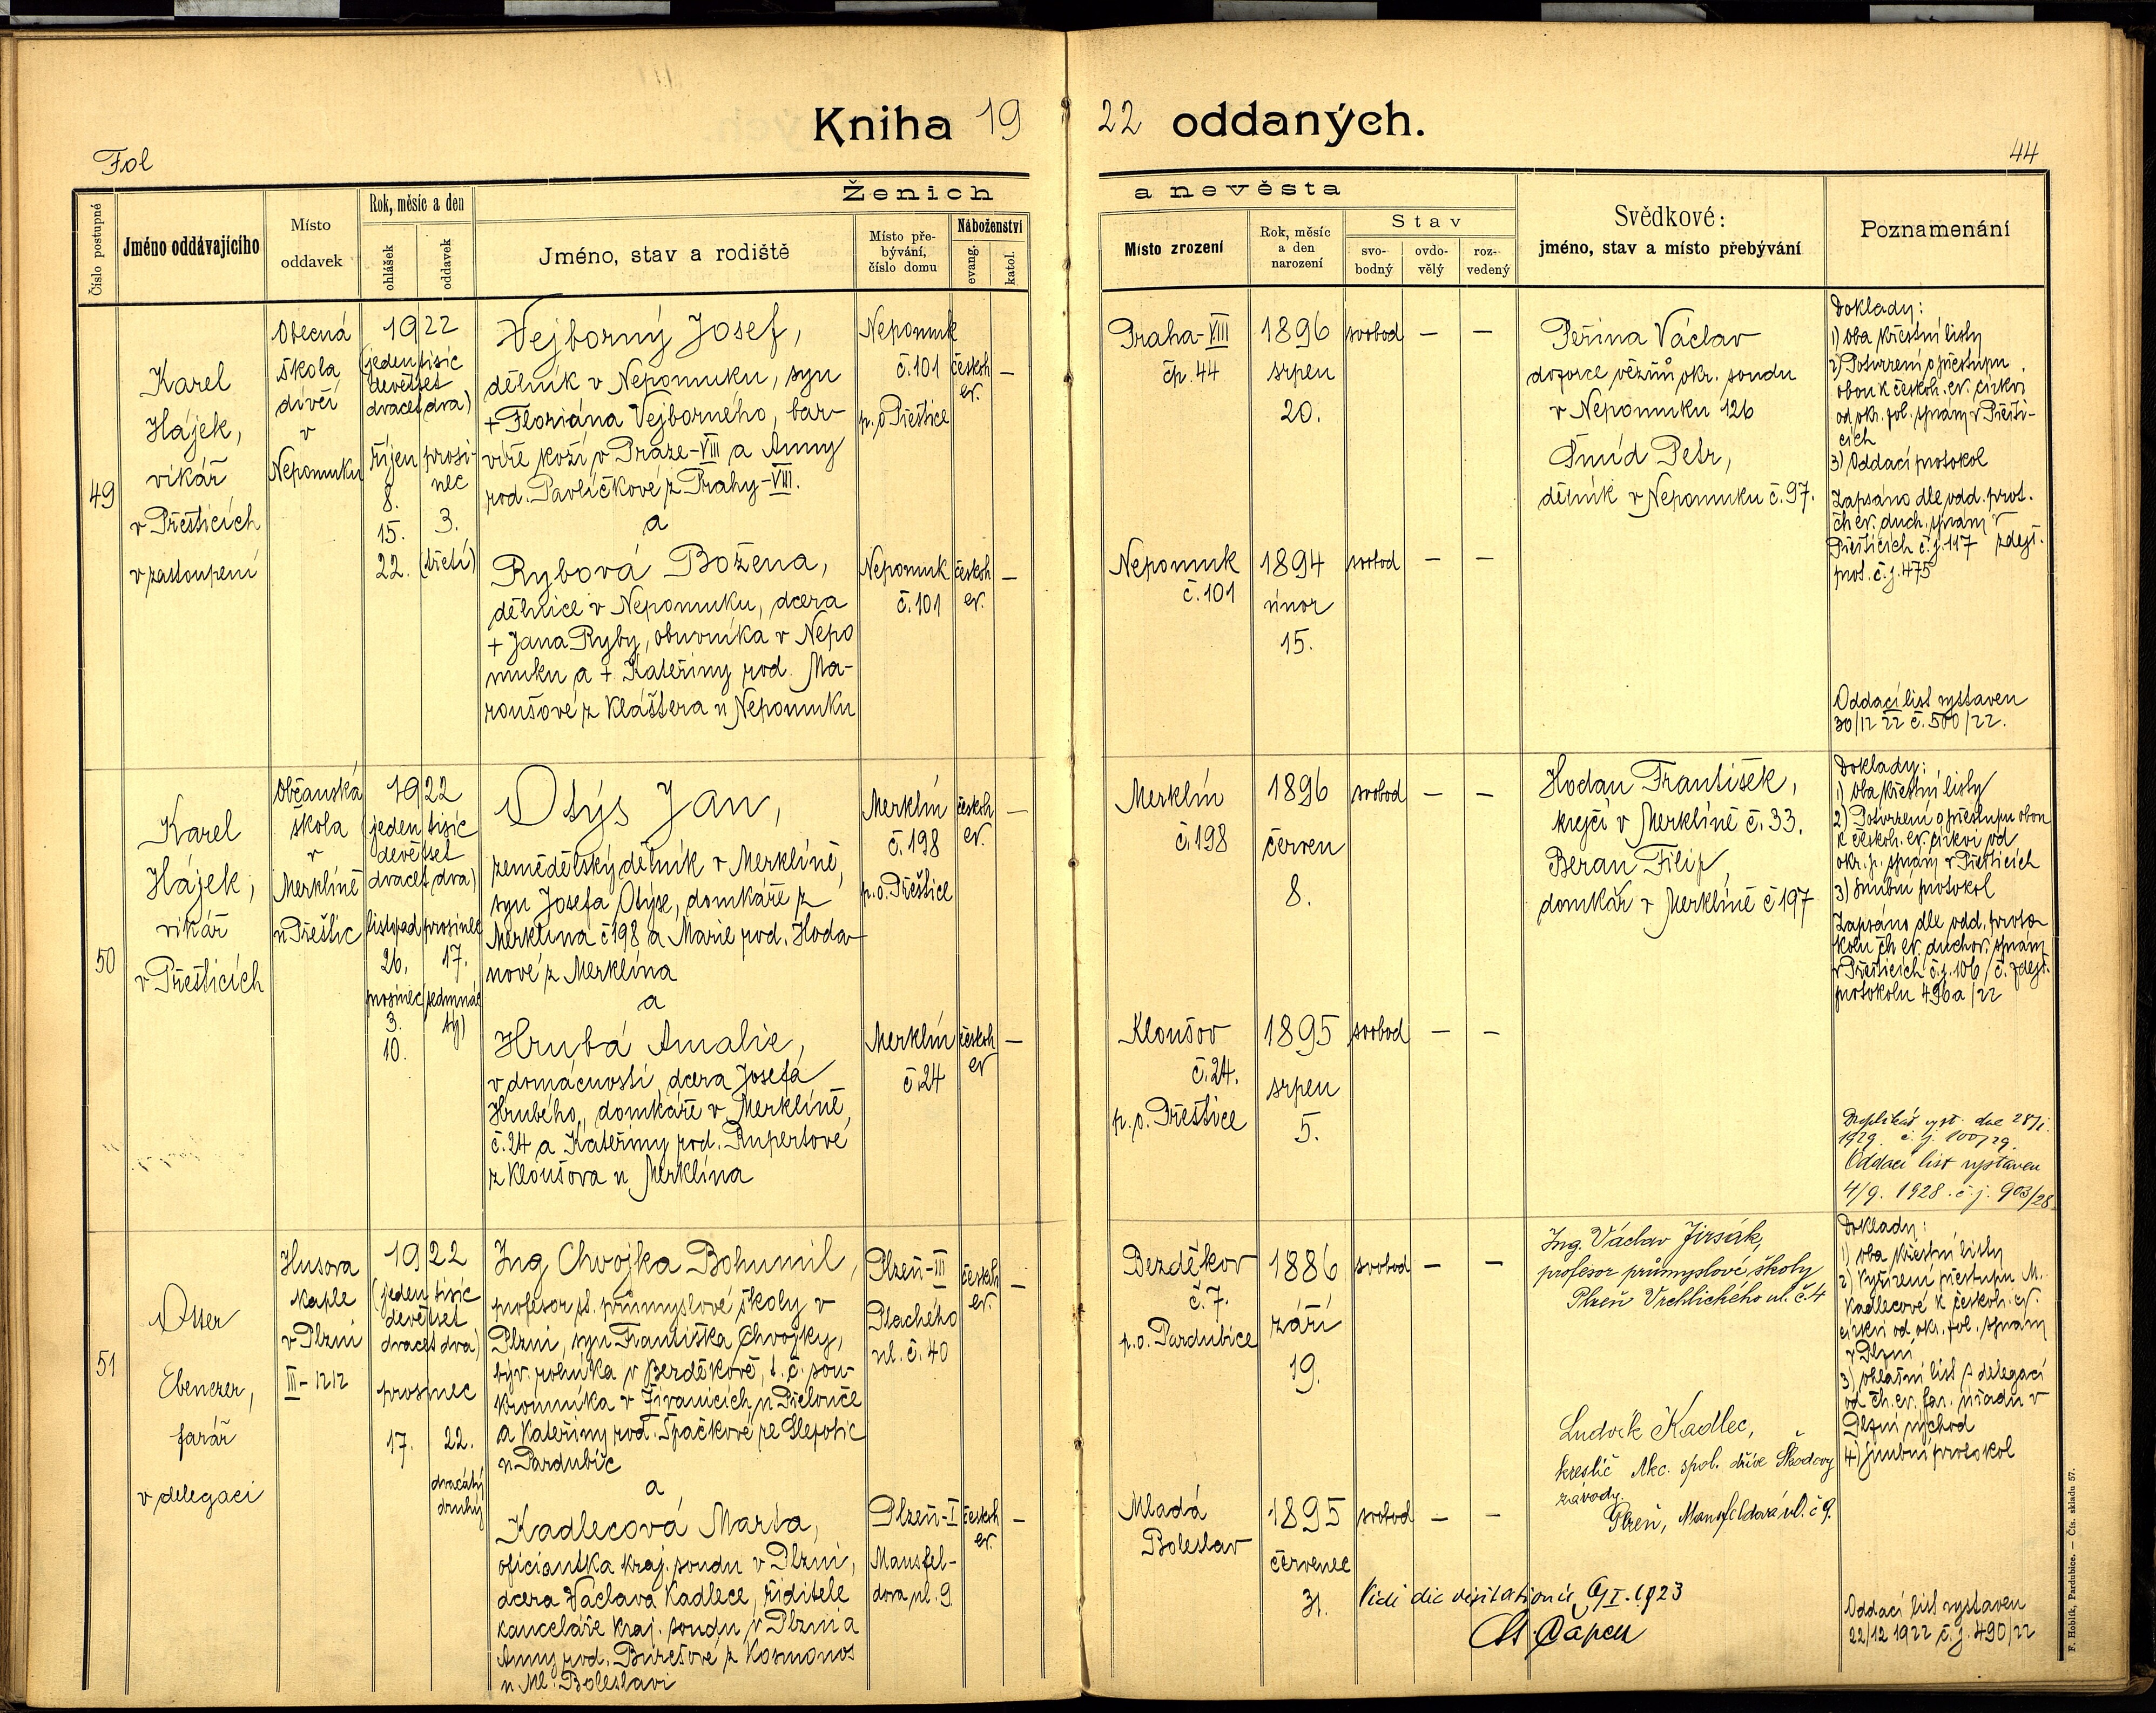 Kniha 19 22 oddaných.
Fol
44
Číslo postupné
Jméno oddávajícího
Místo
oddavek
Rok, měsíc a den
ohlášek
oddavek
Ženich
a nevěsta
Jméno, stav a rodiště
Místo pře-
bývání,
číslo domu
Náboženství
evang.
katol.
Místo zrození
Rok, měsíc
a den
narození
Stav
svo-
bodný
ovdo-
vělý
roz-
vedený
Svědkové:
jméno, stav a místo přebývání
Poznamenání
49
Karel
Hájek,
vikář
v Přešticích
v zastoupení
Obecná
škola
dívčí
v
Nepomuku
1922
(jeden tisíc
devětset
dvacet dva)
říjen
8.
15.
22.
prosi-
nec
3.
(třetí)
Vejborný Josef,
dělník v Nepomuku, syn
+ Floriána Vejborného, bar-
víře koží v Praze-VIII a Anny
rod. Pavlíčkové z Prahy-VIII.
a
Rybová Božena,
dělnice v Nepomuku, dcera
+ Jana Ryby, obuvníka v Nepo
muku a + Kateřiny rod. Ma-
roušové z Kláštera u Nepomuku
Nepomuk
č. 101
p. o Přeštice
českoh
ev.
—
Nepomuk
č. 101
českoh
ev.
—
Praha-VIII
čp. 44
1896
srpen
20.
svobod — —
Nepomuk
č. 101
1894
únor
15.
svobod — —
Peřina Václav
dozorce vězňů okr. soudu
v Nepomuku 126
Šmíd Petr,
dělník v Nepomuku č. 97.
Doklady:
1) oba křestní listy
2) Potvrzení o přestupu
obou k českob. ev. církvi
od okr. pol. správy v Přešti-
cích
3) Oddací protokol
Zapsáno dle odd. prot.
čb ev. duch. správy v
Přešticích č. j. 117 zdejš.
prot. č. j. 475
Oddací list vystaven
30/12 22 č. 500/22.
50
Karel
Hájek,
vikář
v Přešticích
Občanská
škola
v
Merklíně
u Přeštic
1922
(jeden tisíc
devětset
dvacet dva)
listopad
26.
prosinec
3.
10.
prosinec
17.
(sedmnác
tý)
Otýs Jan,
zemědělský dělník v Merklíně,
syn Josefa Otýse, domkáře z
Merklína č 198 a Marie rod. Hoda-
nové z Merklína
a
Hrubá Amalie,
v domácnosti, dcera Josefa
Hrubého, domkáře v Merklíně
č. 24 a Kateřiny rod. Rupertové
z Kloušova u Merklína
Merklín
č. 198
p. o. Přeštice
českoh
ev.
—
Merklín
č. 24
českoh
ev
—
Merklín
č. 198
1896
červen
8.
svobod — —
Kloušov
č. 24.
p. o. Přeštice
1895
srpen
5.
svobod — —
Hodan František,
krejčí v Merklíně č. 33.
Beran Filip,
domkář v Merklíně č 197
Doklady:
1) oba křestní listy
2) Potvrzení o přestupu obou
k českob. ev. církvi od
okr. p. správy v Přešticích
3) snubní protokol
Zapsáno dle odd. proto-
kolu čb ev. duchov. správy
v Přešticích č. j. 106 / č. zdejš.
protokolu 496a/22
Duplikát vyst. dne 28/1.
1929. č. j. 100/29.
Oddací list vystaven
4/9. 1928. č. j. 903/28
51
Otter
Ebenezer,
farář
v delegaci
Husova
kaple
v Plzni
III-1212
1922
(jeden tisíc
devětset
dvacet dva)
prosinec
17.
22.
dvacátý
druhý
Ing Chvojka Bohumil,
profesor st. průmyslové školy v
Plzni, syn Františka Chvojky,
býv. rolníka v Bezděkově, t. č. sou-
kromníka v Živanicích u Přelouče
a Kateřiny rod. Špačkové ze Slepotic
u Pardubic
a
Kadlecová Marta,
oficiantka kraj. soudu v Plzni,
dcera Václava Kadlece, ředitele
kanceláře kraj. soudu v Plzni a
Anny rod. Burešové z Kosmonos
u Ml. Boleslavi
Plzeň-III
Plachého
ul. č. 40
českoh
ev.
—
Plzeň-I
Mansfel-
dova ul. 9
českoh
ev.
—
Bezděkov
č. 7.
p. o. Pardubice
1886
září
19.
svobod — —
Mladá
Boleslav
1895
červenec
31.
svobod — —
Ing. Václav Jirsák,
profesor průmyslové školy
Plzeň Vrchlického ul. č. 4
Ludvík Kadlec,
kreslič Akc. spol. dříve Škodovy
závody.
Plzeň, Mansfeldova ul. č 9.
Vidi die visitationis 9/I. 1923
Doklady:
1) oba křestní listy
2) Vyřízení přestupu M.
Kadlecové k českob. ev.
církvi od okr. pol. správy
v Plzni
3) ohlašní list s delegací
od čb. ev. far. úřadu v
Plzni východ
4) snubní protokol
Oddací list vystaven
22/12 1922 č. j. 490/22
F. Hoblík, Pardubice. — Čís. skladu 57.